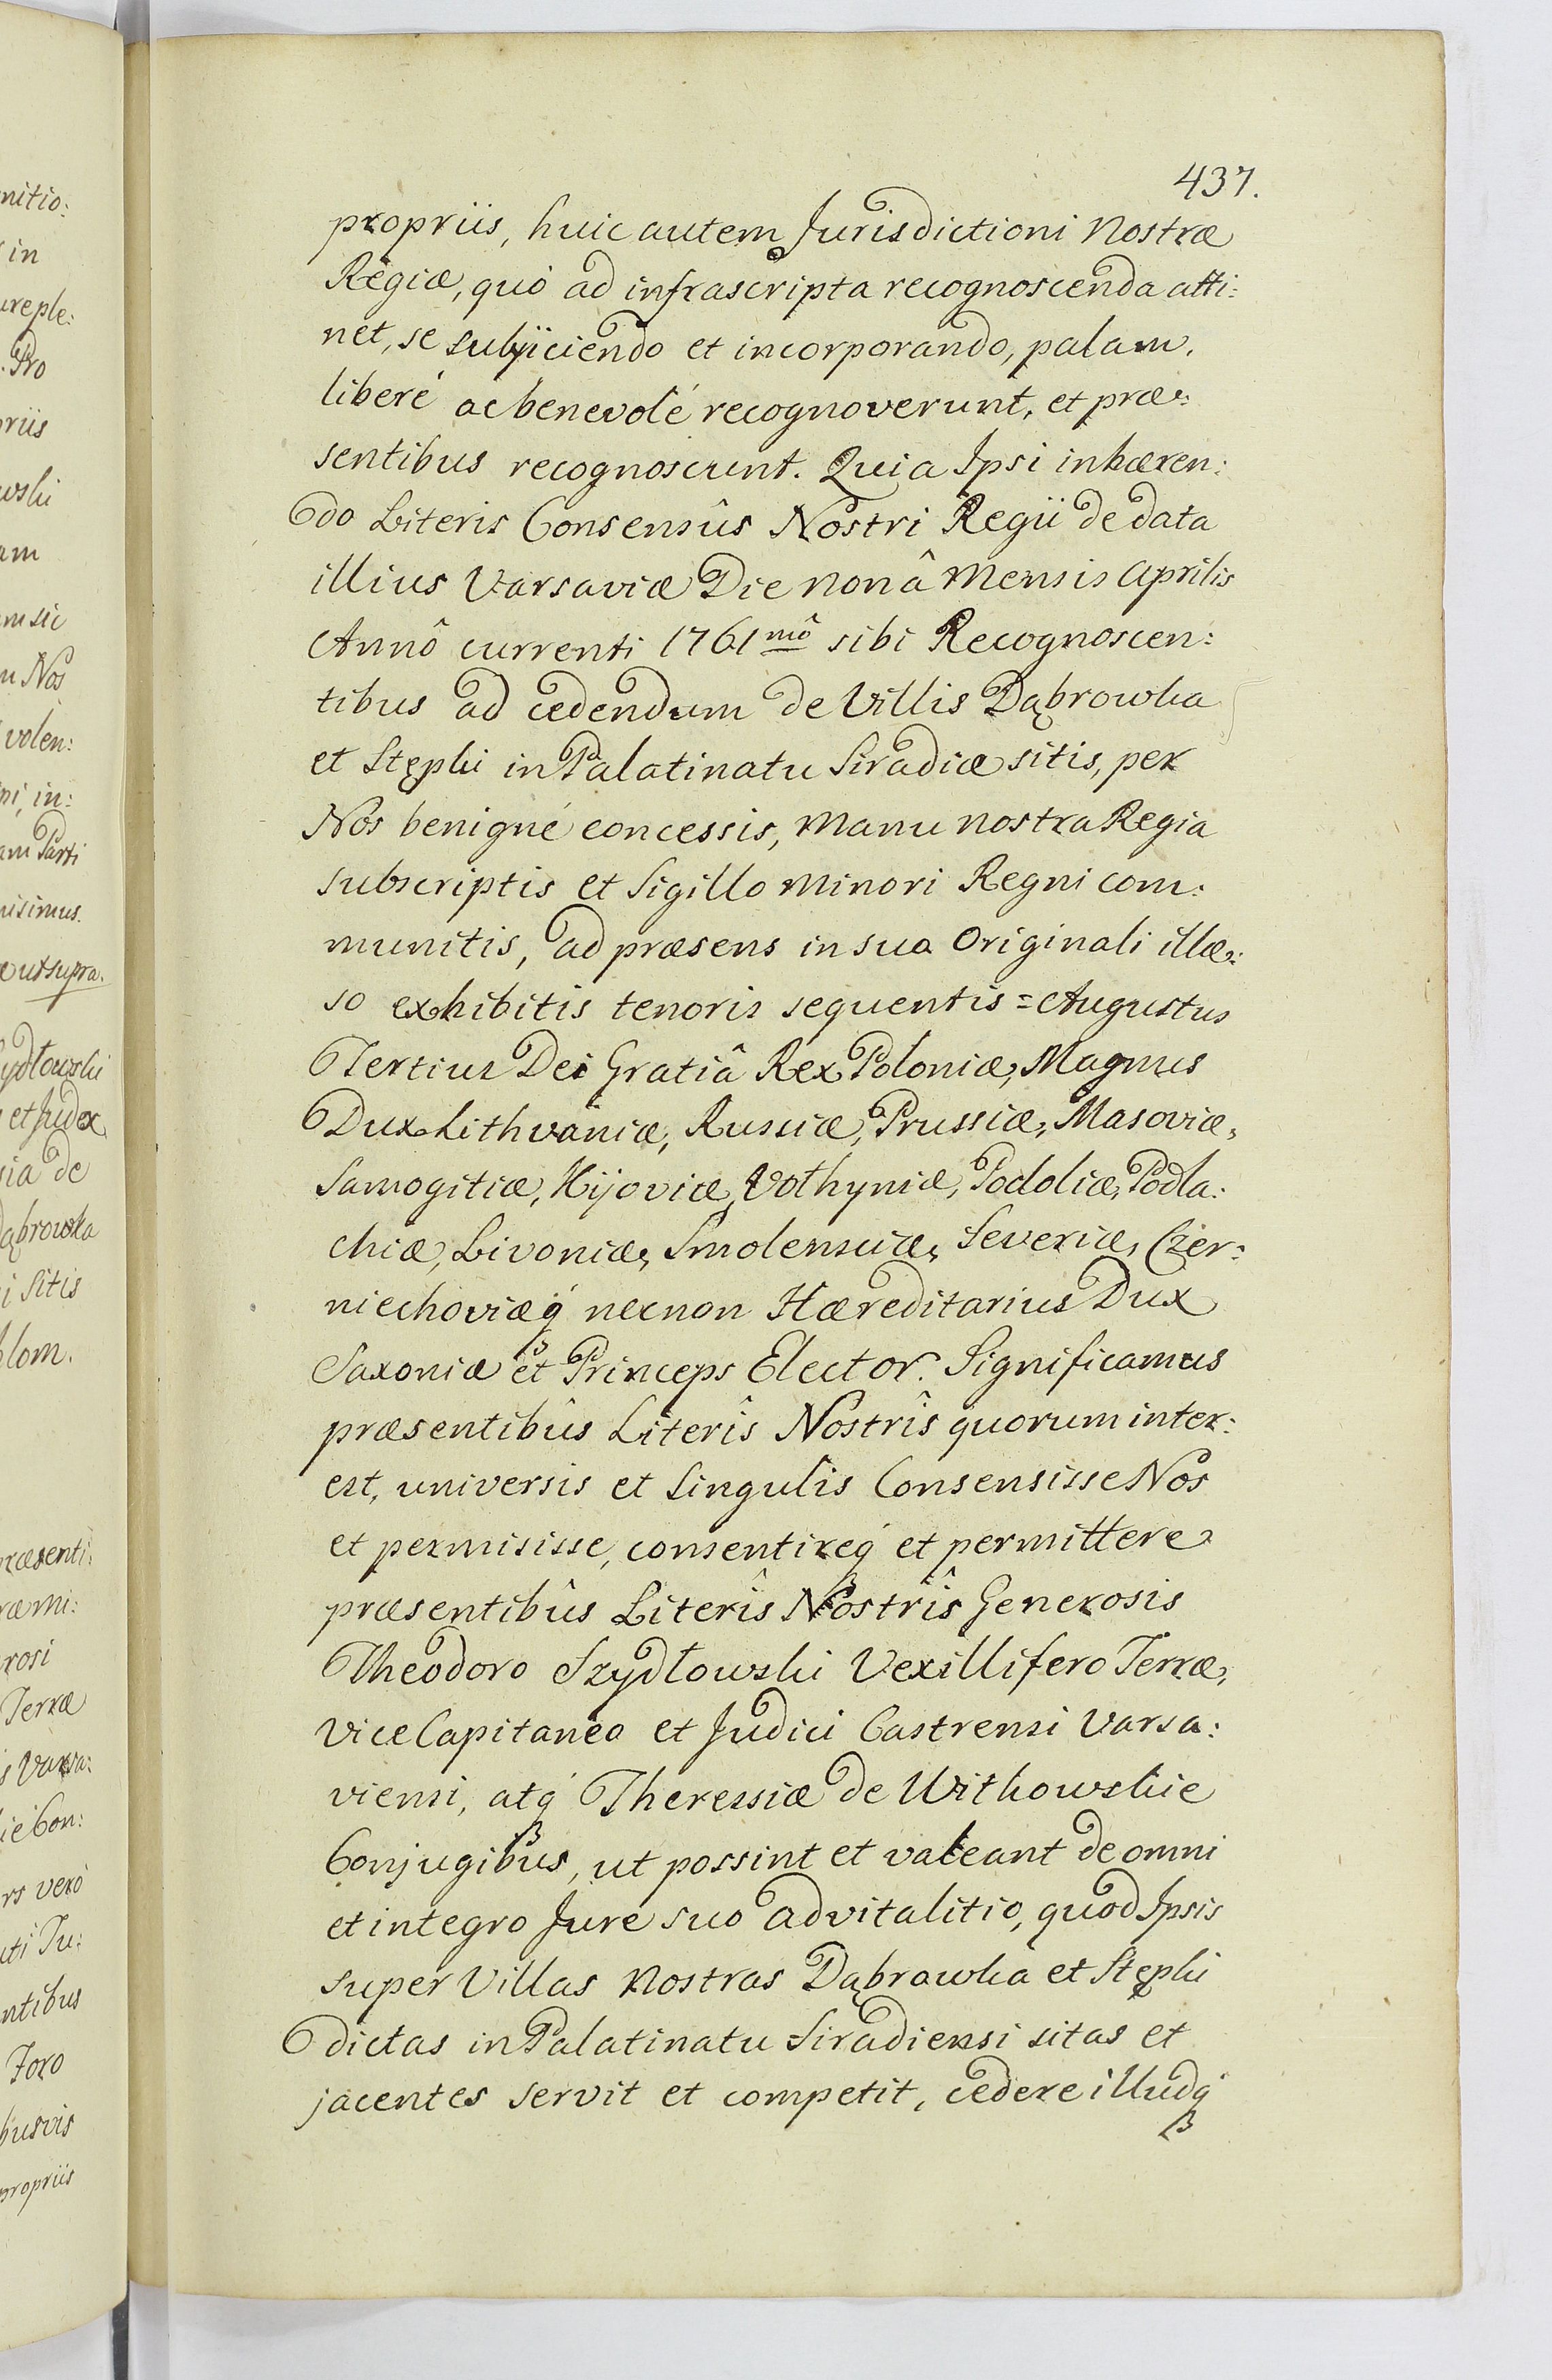 437.
propriis, huic autem Jurisdictioni Nostræ
Regiæ, quò ad infrascripta recognoscenda atti:
net, se subjiciendo et incorporando, palam,
liberé ac benevolé recognoverunt, et præ:
sentibus recognoscunt. Quia Ipsi inhæren:
do Literis Consensûs Nostri Regii de data
illius Varsaviæ Die nonâ Mensis Aprilis
Annô currenti 1761mô sibi Recognoscen:
tibus ad cedendum de Villis Dąbrowka
et Stępki in Palatinatu Siradiæ sitis, per
Nos benigné concessis, Manu nostra Regia
subscriptis et Sigillo Minori Regni com:
munitis, ad præsens in suo Originali illæ:
so exhibitis tenoris sequentis = Augustus
Tertius Dei Gratiâ Rex Poloniæ, Magnus
Dux Lithvaniæ, Russiæ, Prussiæ, Masoviæ,
Samogitiæ, Kijoviæ, Volhyniæ, Podoliæ, Podla:
chiæ, Livoniæ, Smolensciæ, Severiæ, Czer:
niechoviæq́ necnon Hæreditarius Dux
Saxoniæ et Princeps Elector. Significamus
præsentibûs Literîs Nostrîs quorum inter:
est, universis et singulis Consensisse Nos
et permisisse, consentireq́ et permittere
præsentibûs Literîs Nostrîs Generosis
Theodoro Szydłowski Vexillifero Terræ,
Vice Capitaneo et Judici Castrensi Varsa:
viensi, atq́ Theressiæ de Witkowskie
Conjugibus, ut possint et valeant de omni
et integro Jure suo advitalitio, quod Ipsis
super Villas Nostras Dąbrowka et Stępki
dictas in Palatinatu Siradiensi sitas et
jacentes servit et competit, cedere illudq́